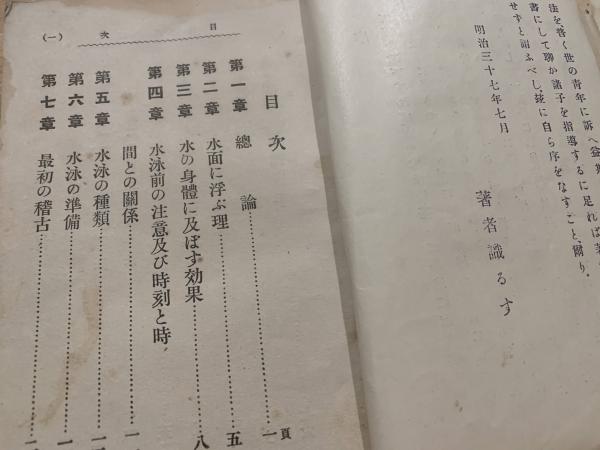 法を、普く世の青年に訴へ益
書にして聊か諸子を指導するに足れば
せずと謂ふべし、玆に自ら序をなすこと、爾り。
明治三十七年七月
著者識るす
目次 (一)
目次
第一章 總論 一頁
第二章 水面に浮ぶ理 五
第三章 水の身體に及ぼす効果 八
第四章 水泳前の注意及び時刻と時
間との關係
第五章 水泳の種類
第六章 水泳の準備
第七章 最初の稽古